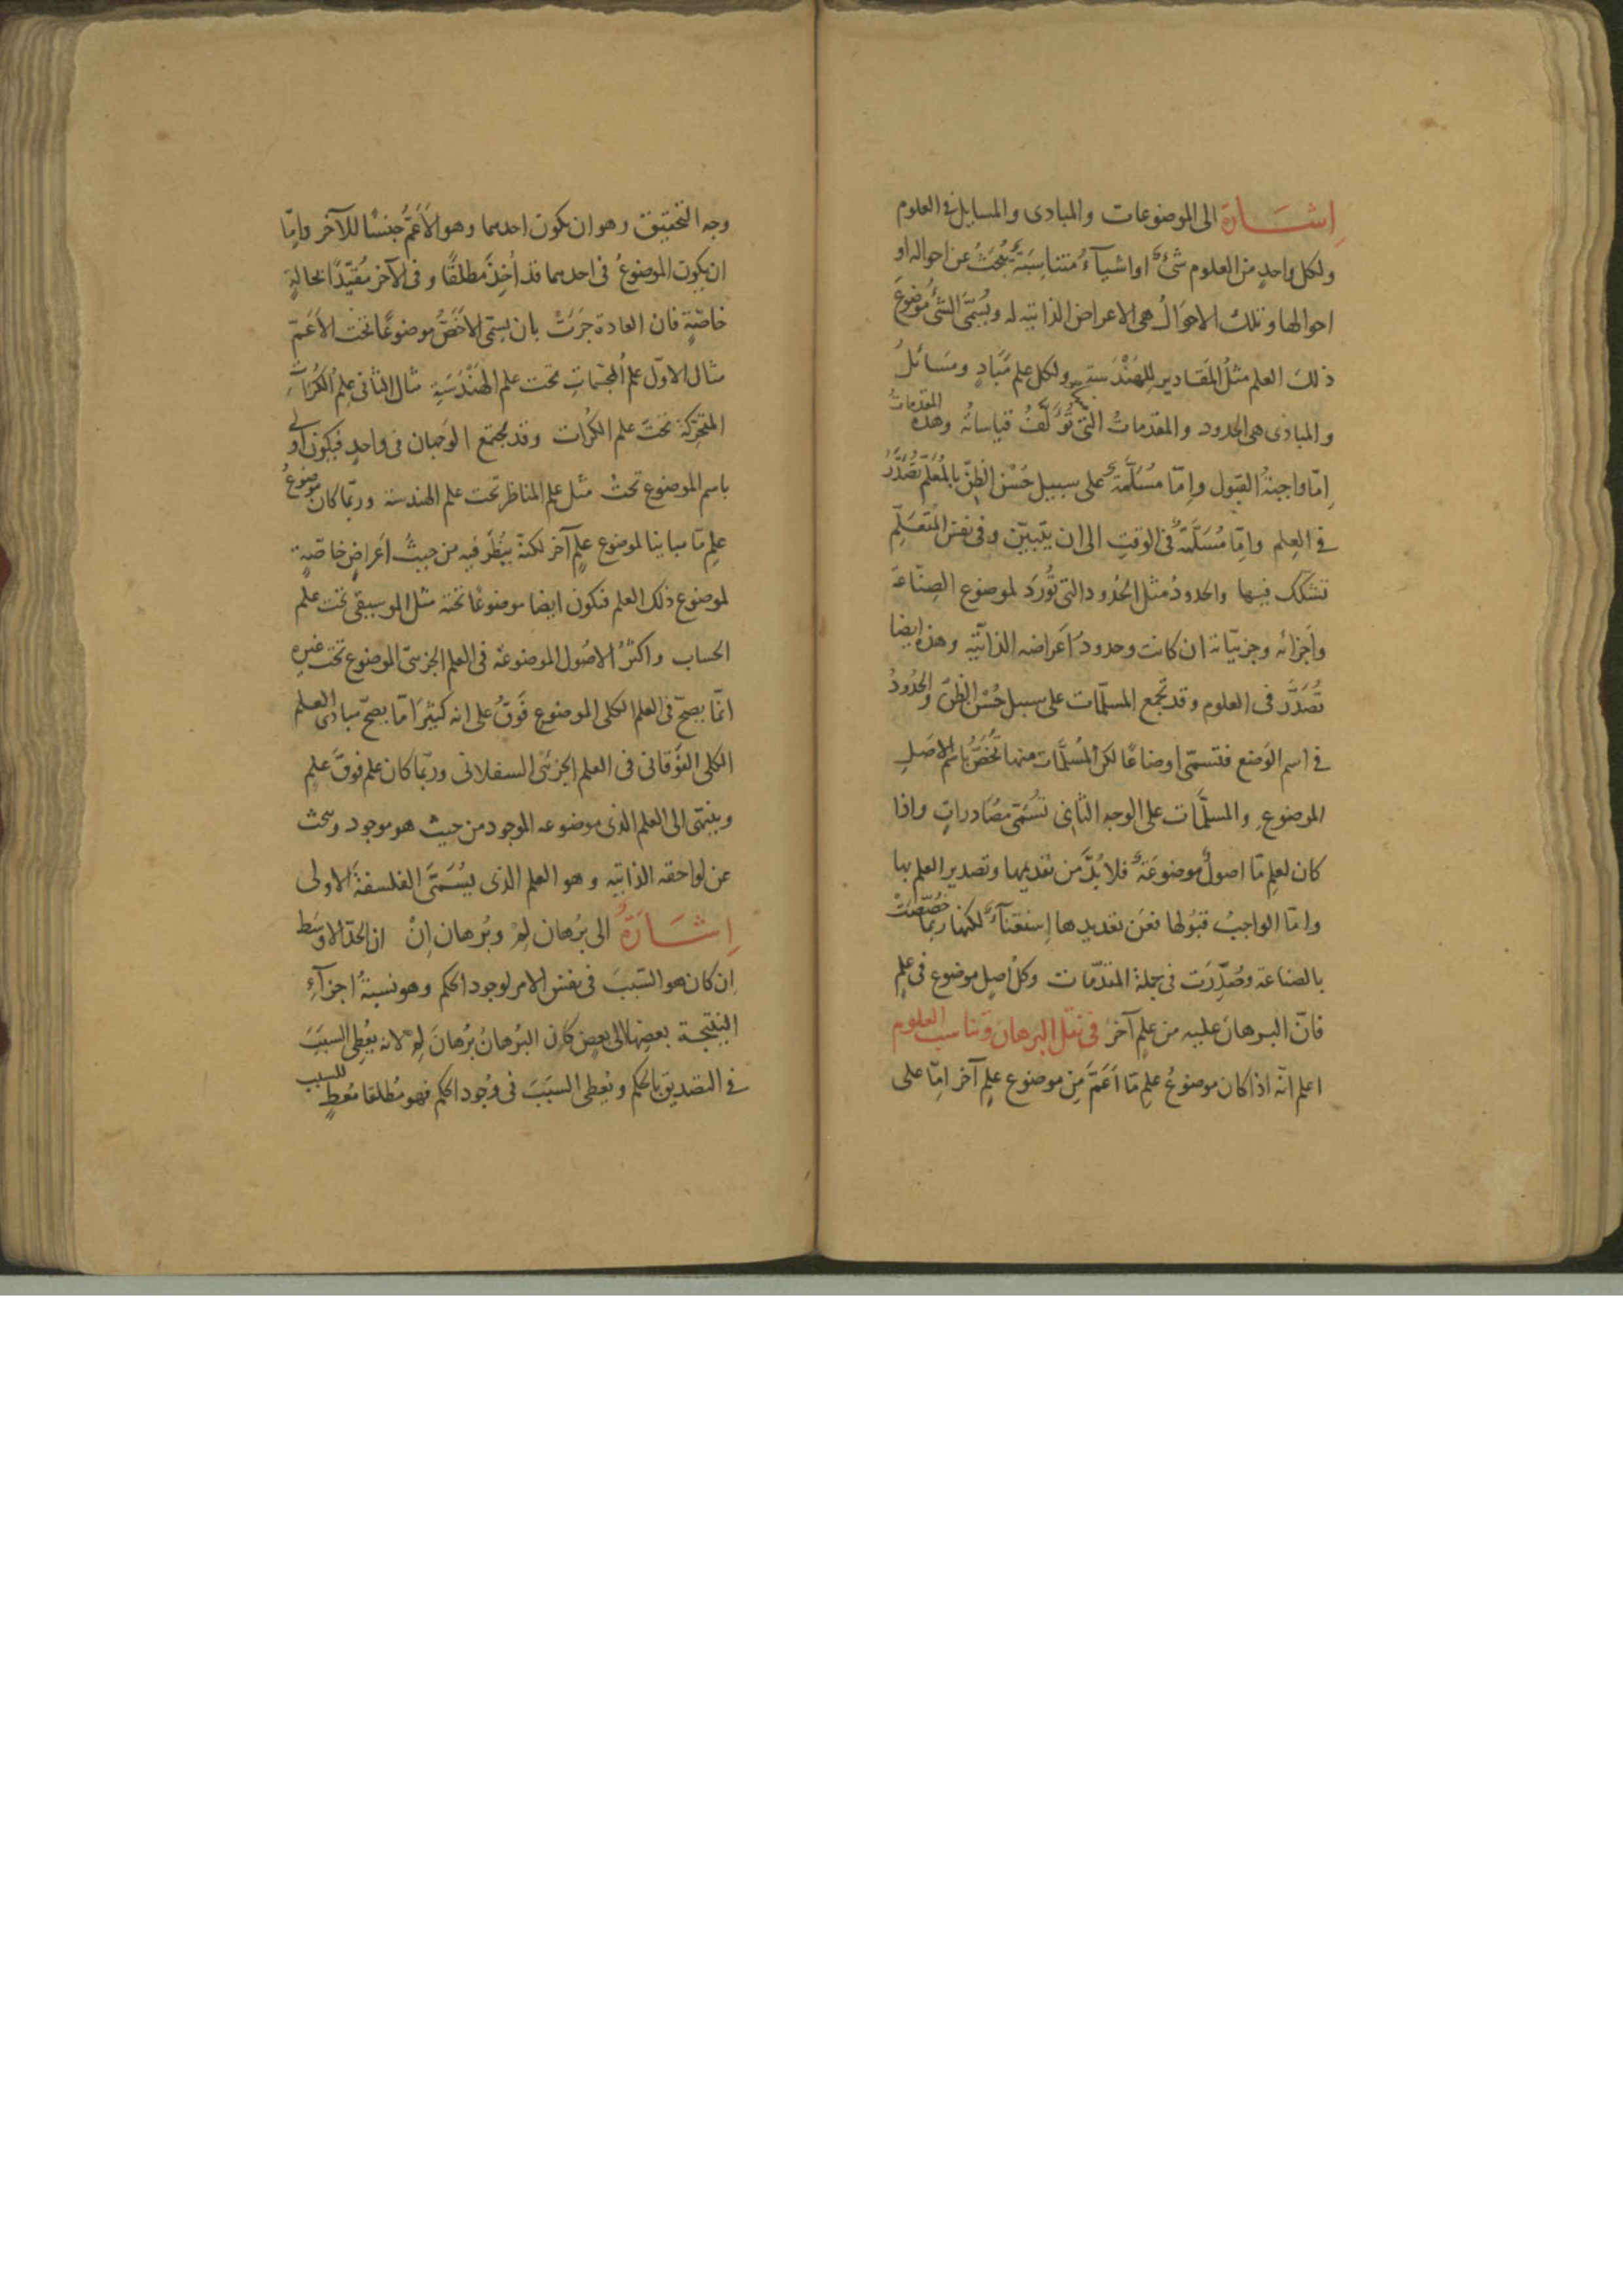 إشارة الى الموضوعات والمبادى والمسايل فى العلوم
ولكل واحد من العلوم شئ او اشيآء متناسبة يبحث عن احواله او
احوالها وتلك الاحوال هى الاعراض الذاتيه له ويسمى الشئ موضوع
ذلك العلم مثل المقادير للهندسة ولكل علم مباد ومسائل
والمبادى هى الحدود والمقدمات التى تؤلف قياساته وهذه المقدمات
إما واجبة القبول وإما مسلمة على سبيل حسن الظن بالمعلم تصدر
فى العلم وإما مسلمة فى الوقت الى ان يتبين وفى نفس المتعلم
تشكك فيها والحدود مثل الحدود التى تورد لموضوع الصناعة
وأجزائه وجزئياته ان كانت وحدود أعراضه الذاتية وهذه ايضا
تصدر فى العلوم وقد تجمع المسلمات على سبيل حسن الظن والحدود
فى اسم الوضع فتسمى اوضاعا لكن المسلمات منها تخص باسم الاصل
الموضوع والمسلمات على الوجه الثانى تسمى مصادرات واذا
كان لعلم ما اصول موضوعة فلا بد من تقديمها وتصدير العلم بها
واما الواجب قبولها فعن تعديدها إستغنآء لكنها ربما خصصت
بالصناعة وصدرت فى جملة المقدمات وكل اصل موضوع فى علم
فان البرهان عليه من علم آخر فى نقل البرهان وتناسب العلوم
اعلم انه اذا كان موضوع علم ما أعم من موضوع علم آخر اما على
وجه التحقيق وهو ان يكون احدهما وهو الأعم جنسا للآخر وإما
ان يكون الموضوع فى احدهما قد أخذ مطلقا وفى الآخر مقيدا بحالة
خاصة فان العادة جرت بان يسمى الأخص موضوعا تحت الأعم
مثال الاول علم المجسمات تحت علم الهندسة مثال الثانى علم الكرات
المتحركة تحت علم الكرات وقد يجتمع الوجهان فى واحد فيكون أولى
باسم الموضوع تحت مثل علم المناظر تحت علم الهندسة وربما كان موضوع
علم ما مباينا لموضوع علم آخر لكنه ينظر فيه من حيث أعراض خاصة
لموضوع ذلك العلم فيكون ايضا موضوعا تحته مثل الموسيقى تحت علم
الحساب واكثر الاصول الموضوعة فى العلم الجزئى الموضوع تحت غيره
انما يصح فى العلم الكلى الموضوع فوق على انه كثيرا ما يصح مبادى العلم
الكلى الفوقانى فى العلم الجزئى السفلانى وربما كان علم فوق علم
وينتهى الى العلم الذى موضوعه الموجود من حيث هو موجود ويبحث
عن لواحقه الذاتيه وهو العلم الذى يسمى الفلسفة الاولى
إشارة الى برهان لم وبرهان إن ان الحد الاوسط
إن كان هو السبب فى نفس الامر لوجود الحكم وهو نسبة اجزآء
النتيجة بعضها الى بعض كان البرهان برهان لم لانه يعطى السبب
فى التصديق بالحكم ويعطى السبب فى وجود الحكم فهو مطلقا معط للسبب